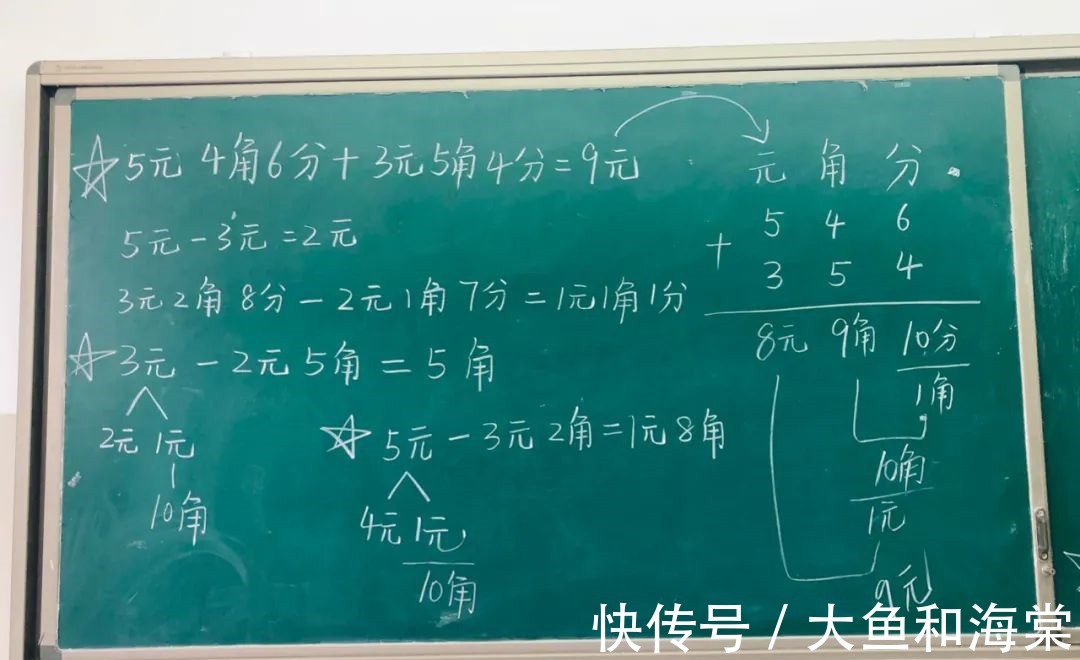 ☆5元4角6分+3元5角4分=9元
5元-3元=2元
3元2角8分-2元1角7分=1元1角1分
☆3元-2元5角=5角
2元 1元
10角
☆5元-3元2角=1元8角
4元 1元
10角
元 角 分
5 4 6
+ 3 5 4
8元 9角 10分
1角
10角
1元
9元
快传号 / 大鱼和海棠